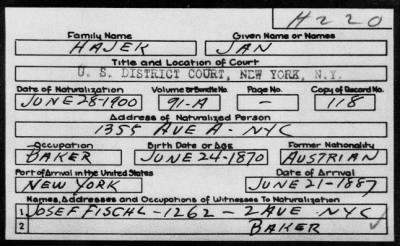 H220
Family Name Given Name or Names
HAJEK JAN
Title and Location of Court
U. S. DISTRICT COURT, NEW YORK, N.Y.
Date of Naturalization Volume or Bundle No. Page No. Copy of Record No.
JUNE 28-1900 91-A - 118
Address of Naturalized Person
1355 AVE A - NYC
Occupation Birth Date or Age Former Nationality
BAKER JUNE 24-1870 AUSTRIAN
Port of Arrival in the United States Date of Arrival
NEW YORK JUNE 21-1887
Names, Addresses and Occupations of Witnesses To Naturalization
1 JOSEF FISCHL-1262-2 AVE NYC
2 BAKER